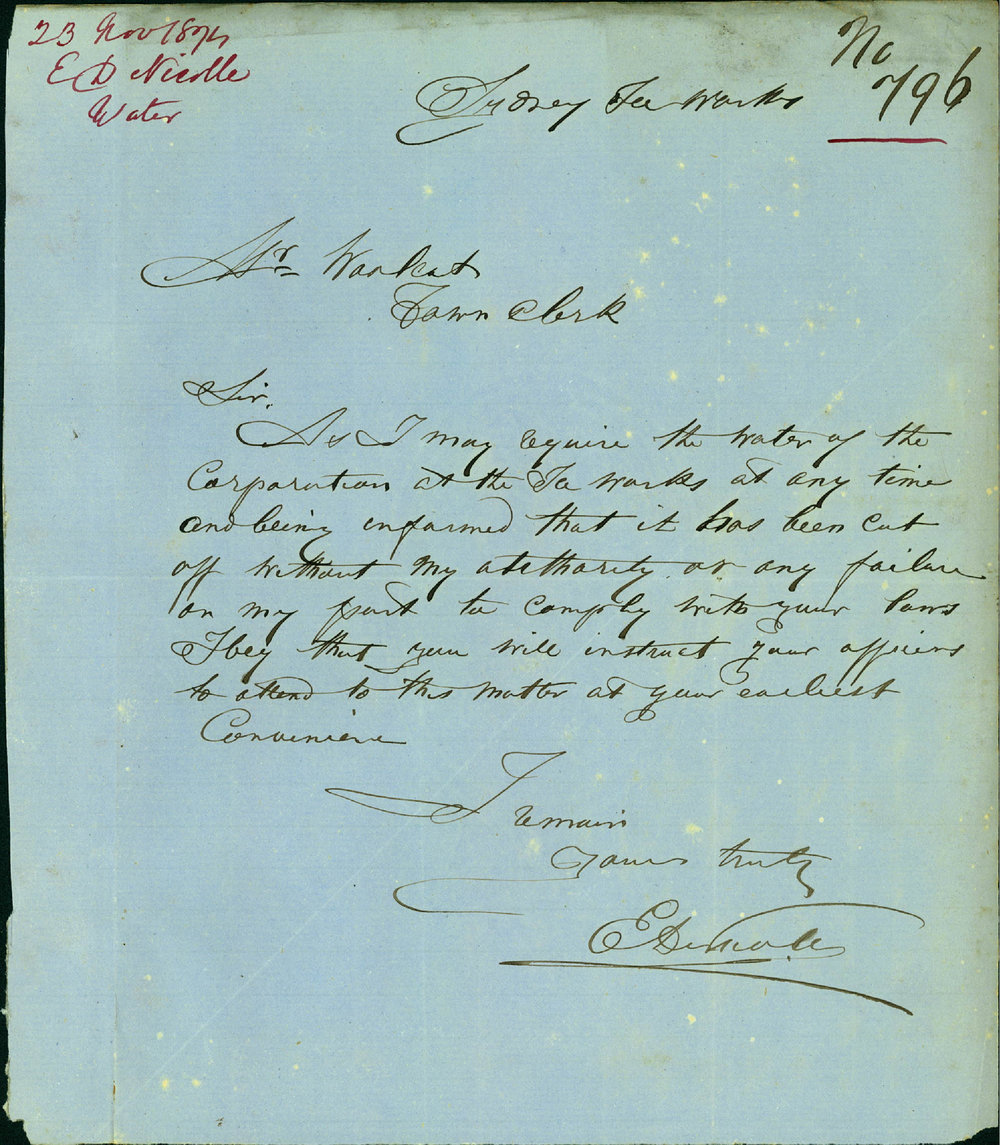 23 Nov 1874
E D Nicolle
Water
No
796
Sydney Ice Works
Mr
Town Clerk
Sir,
As I may require the water of the
Corporation at the Ice works at any time
and being informed that it has been cut
off without my authority or any failure
on my part to comply with your laws
I beg that you will instruct your officers
to attend to this matter at your earliest
Convenience
I
remain
Yours truly
E D Nicolle